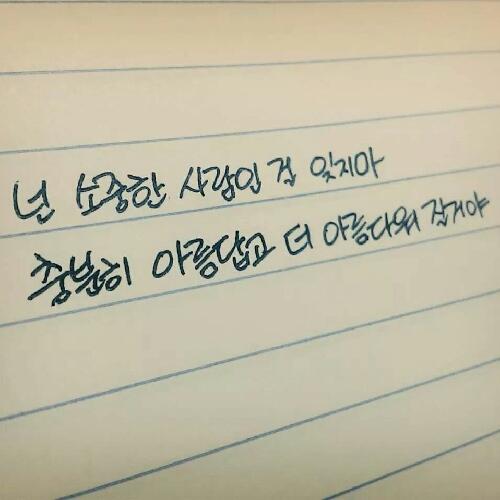 넌 소중한 사람인 걸 잊지마
충분히 아름답고 더 아름다워 질거야